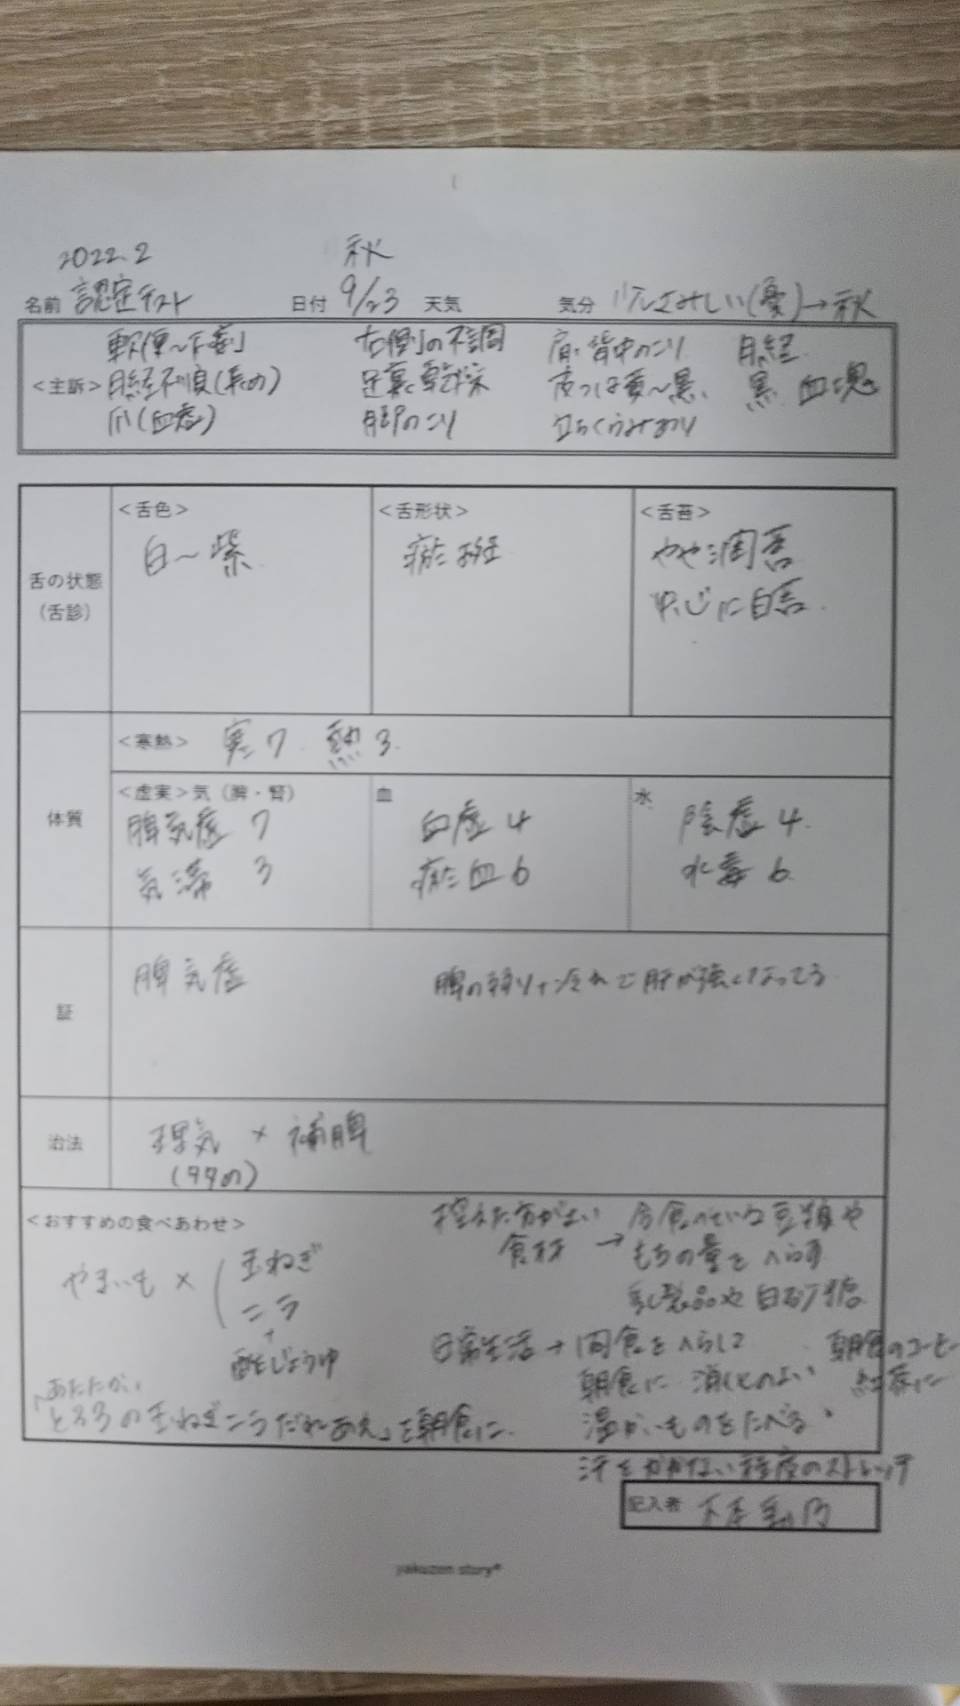 2022.2 秋
名前 認定テスト 日付 9/23 天気 気分 さみしい(憂)→秋
<主訴>
軟便~下痢 右側の不調 肩、背中のこり 月経
月経不順(長め) 足裏乾燥 皮ふは黄~黒、 黒 血塊
爪(血虚) のこり 立ちくらみあり
舌の状態
(舌診)
<舌色> <舌形状> <舌苔>
白~紫 瘀斑 やや潤苔
中心に白苔
体質
<寒熱> 寒7 熱3
<虚実>気(脾・腎) 血 水
脾気虚 7 血虚4 陰虚4
気滞 3 瘀血6 水毒6
証
脾気虚 脾の弱り+冷えで肝が強くなってる
治法
理気 × 補脾
<おすすめの食べあわせ>
やまいも × 玉ねぎ
ニラ
+
しょうゆ
「あたたかい
とろろの玉ねぎニラだれあえ」を朝食に
控えた方がよい 今食べている豆類や
食材 → もちの量をへらす
乳製品や白砂糖
日常生活→間食をへらして 朝食のコーヒー
朝食に消化のよい 紅茶に
温かいものをたべる
汗をかかない程度のストレッチ
記入者
yakuzen story®